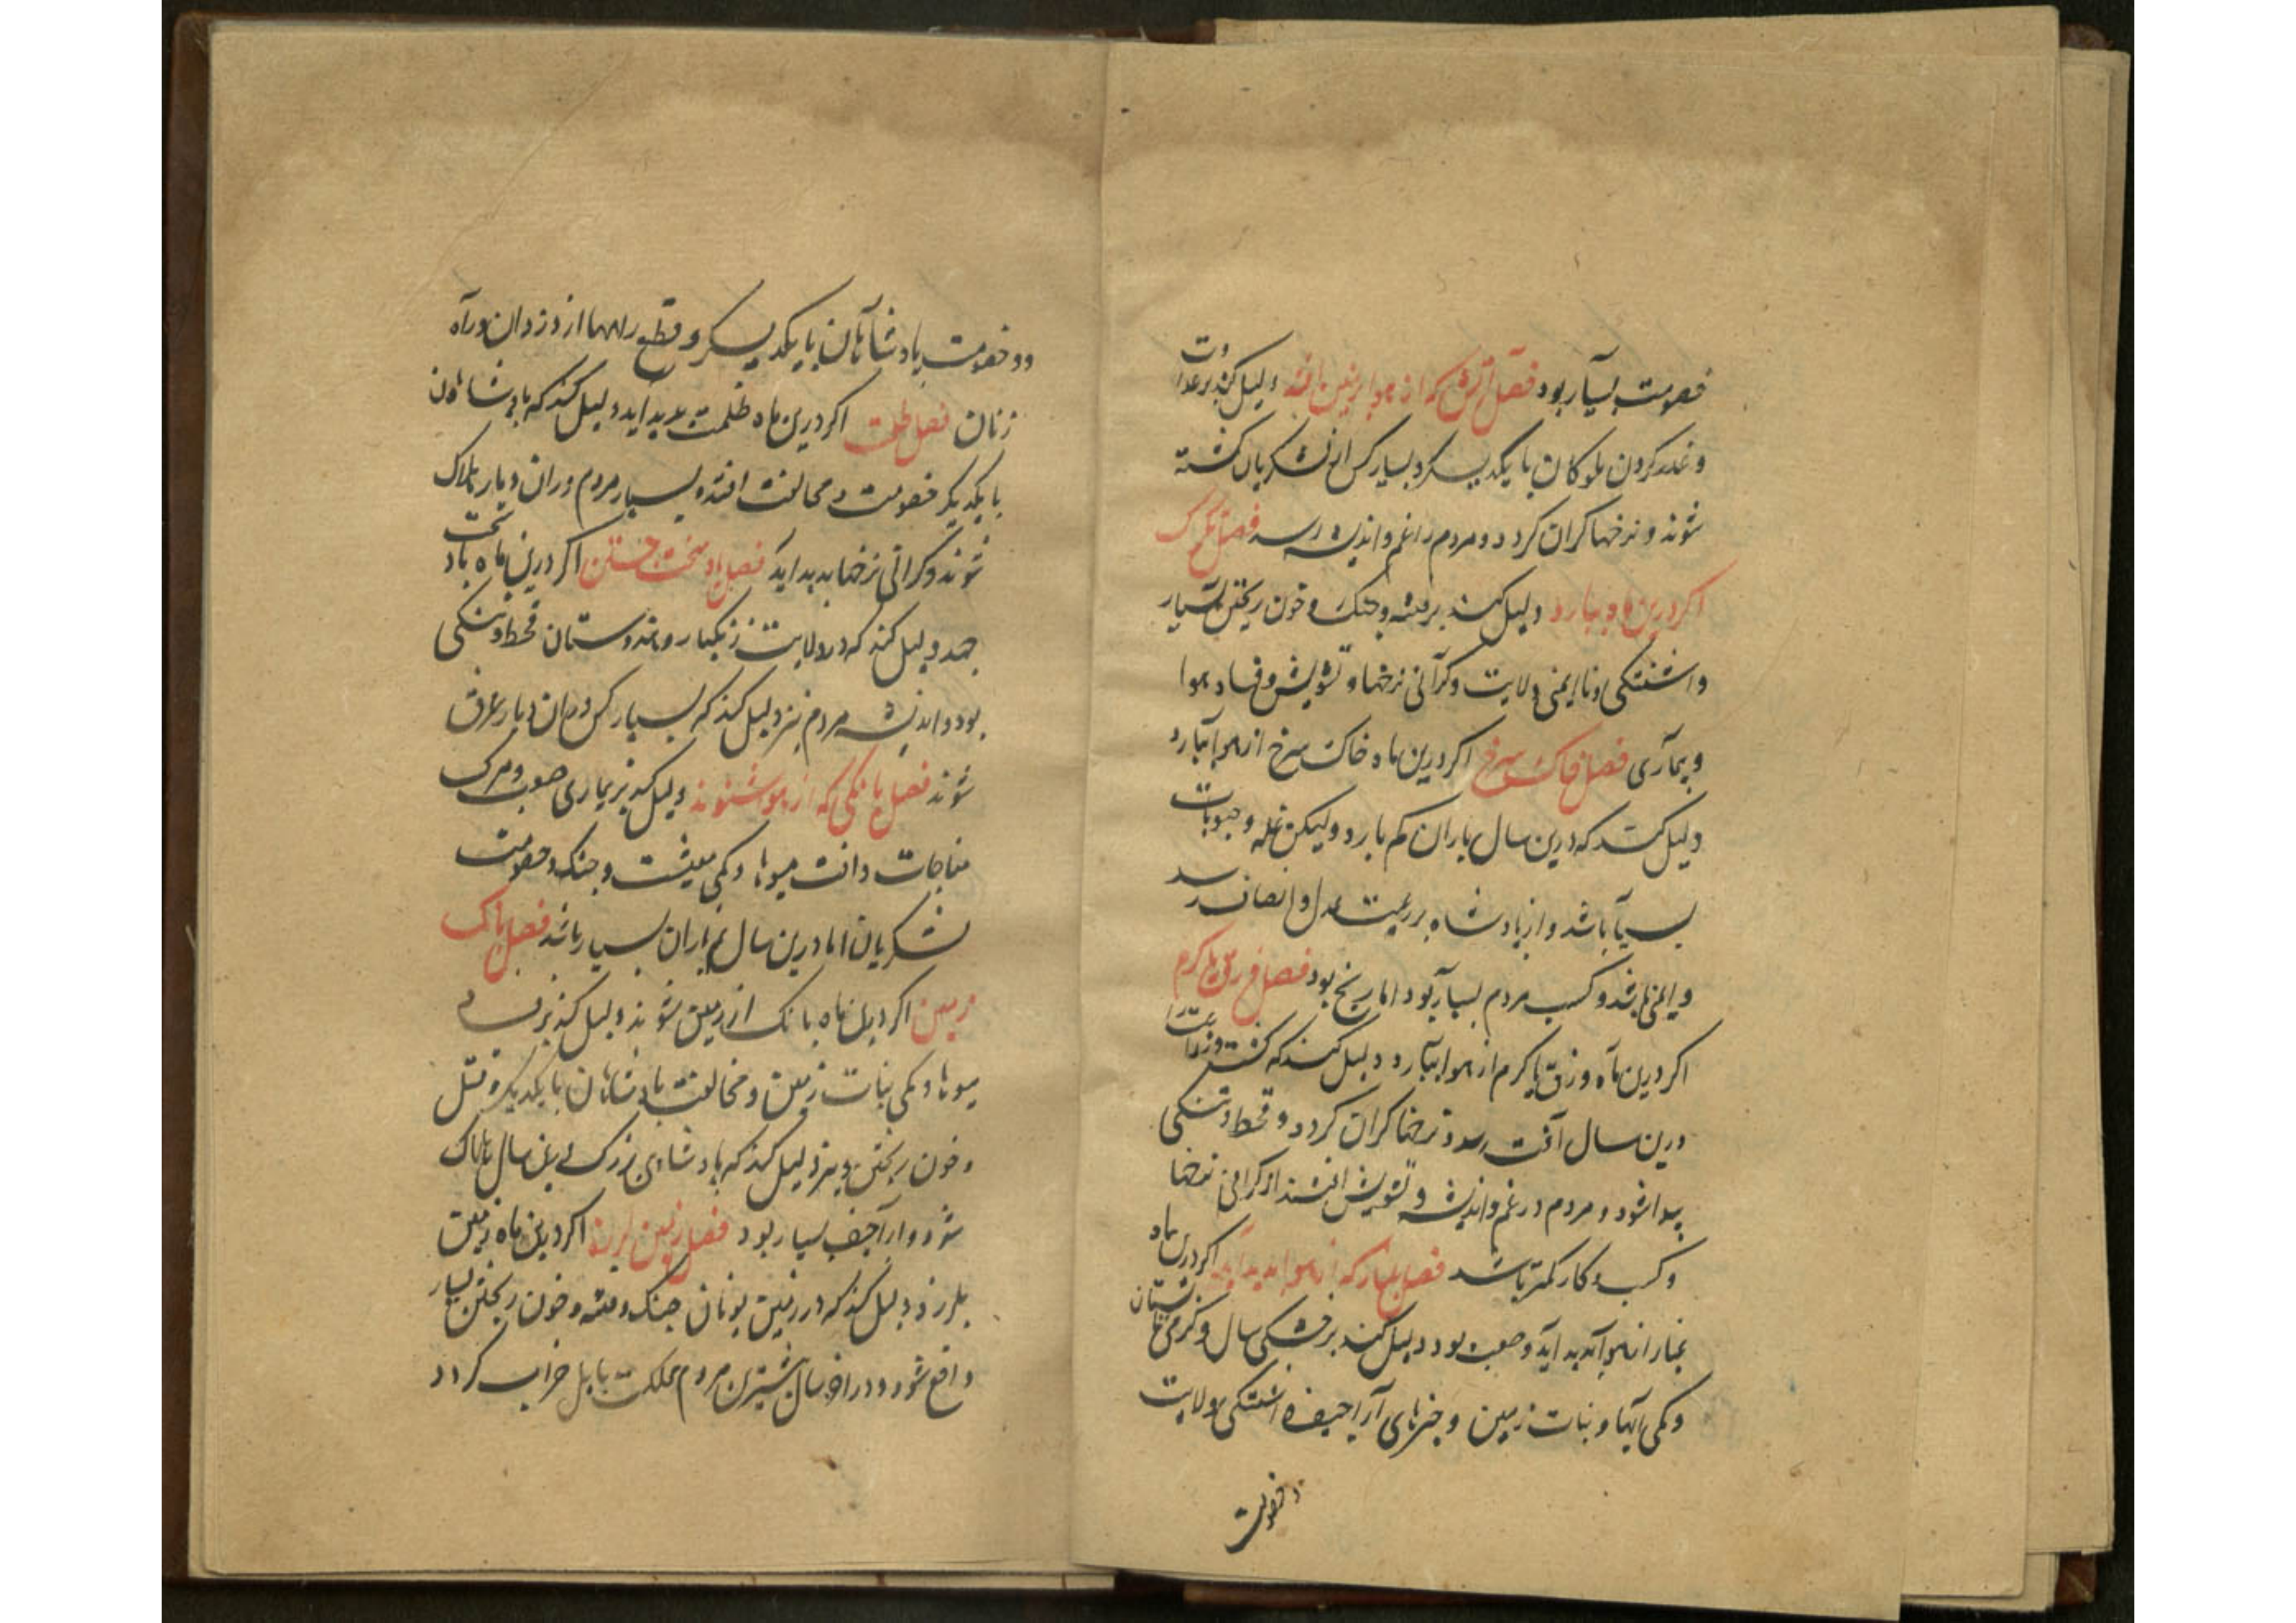 خصومت بسیار بود فصل آتش که از هوا بر زمین افتد دلیل کند بر عداوت
و غدر کردن ملوکان با یکدیکر و بسیار کس از لشکریان کشته
شوند و نرخها کران کردد و مردم را غم و اندیشه رسد فصل تکرک
اکر درین ماه ببارد دلیل کند بر فتنه و جنک و خون ریختن بسیار
و آشفتکی و ناایمنی ولایت و کرانی نرخها و تشویش و فساد هوا
و بیماری فصل خاک سرخ اکر درین ماه خاک سرخ از هوا ببارد
دلیل کند که درین سال باران کم بارد ولیکن غله و حبوبات
بسیار باشد و از پادشاه بر رعیت عدل و انصاف رسد
و ایمنی باشد و کسب مردم بسیار بود اما رنج بود فصل وزق یا کرم
اکر درین ماه وزق یا کرم از هوا ببارد دلیل کند که کشت و زراعت را
درین سال آفت رسد و نرخها کران کردد و قحط و تنکی
پیدا شود و مردم در غم و اندیشه و تشویش افتند از کرانی نرخها
و کسب و کار کمتر باشد فصل غبار که از هوا پدید آید اکر درین ماه
غبار از هوا پدید آید و صعب بود دلیل کند بر خشکی سال و کرمی تابستان
و کمی آبها و نبات زمین و خبرهای آراجیف و آشفتکی ولایت
و خصومت
و خصومت پادشاهان با یکدیکر و قطع راهها از دزدان و راه
زنان فصل ظلمت اکر درین ماه ظلمت پدید آید دلیل کند که پادشاهان
با یکدیکر خصومت و مخالفت افتد و بسیار مردم در آن دیار هلاک
شوند و کرانی نرخها پدید آید فصل باد سخت جستن اکر درین ماه باد سخت
جهد دلیل کند که در ولایت زنکبار و هندوستان قحط و تنکی
بود و اندیشه مردم نیز دلیل کند که بسیار کس در آن دیار غرق
شوند فصل بانکی که از هوا شنوند دلیل کند بر بیماری صعب و مرک
مفاجات و آفت میوها و کمی معیشت و جنک و خصومت
لشکریان اما درین سال نم باران بسیار باشد فصل بانک
زمین اکر درین ماه بانک از زمین شنوند دلیل کند بر فساد
میوها و کمی نبات زمین و مخالفت پادشاهان با یکدیکر و قتل
و خون ریختن و نیز دلیل کند که پادشاهی بزرک درین سال هلاک
شود و اراجیف بسیار بود فصل زمین لرزه اکر درین ماه زمین
بلرزد دلیل کند که در زمین یونان جنک و فتنه و خون ریختن بسیار
واقع شود و در آخر سال بیشترین مردم مملکت بابل خراب کردد